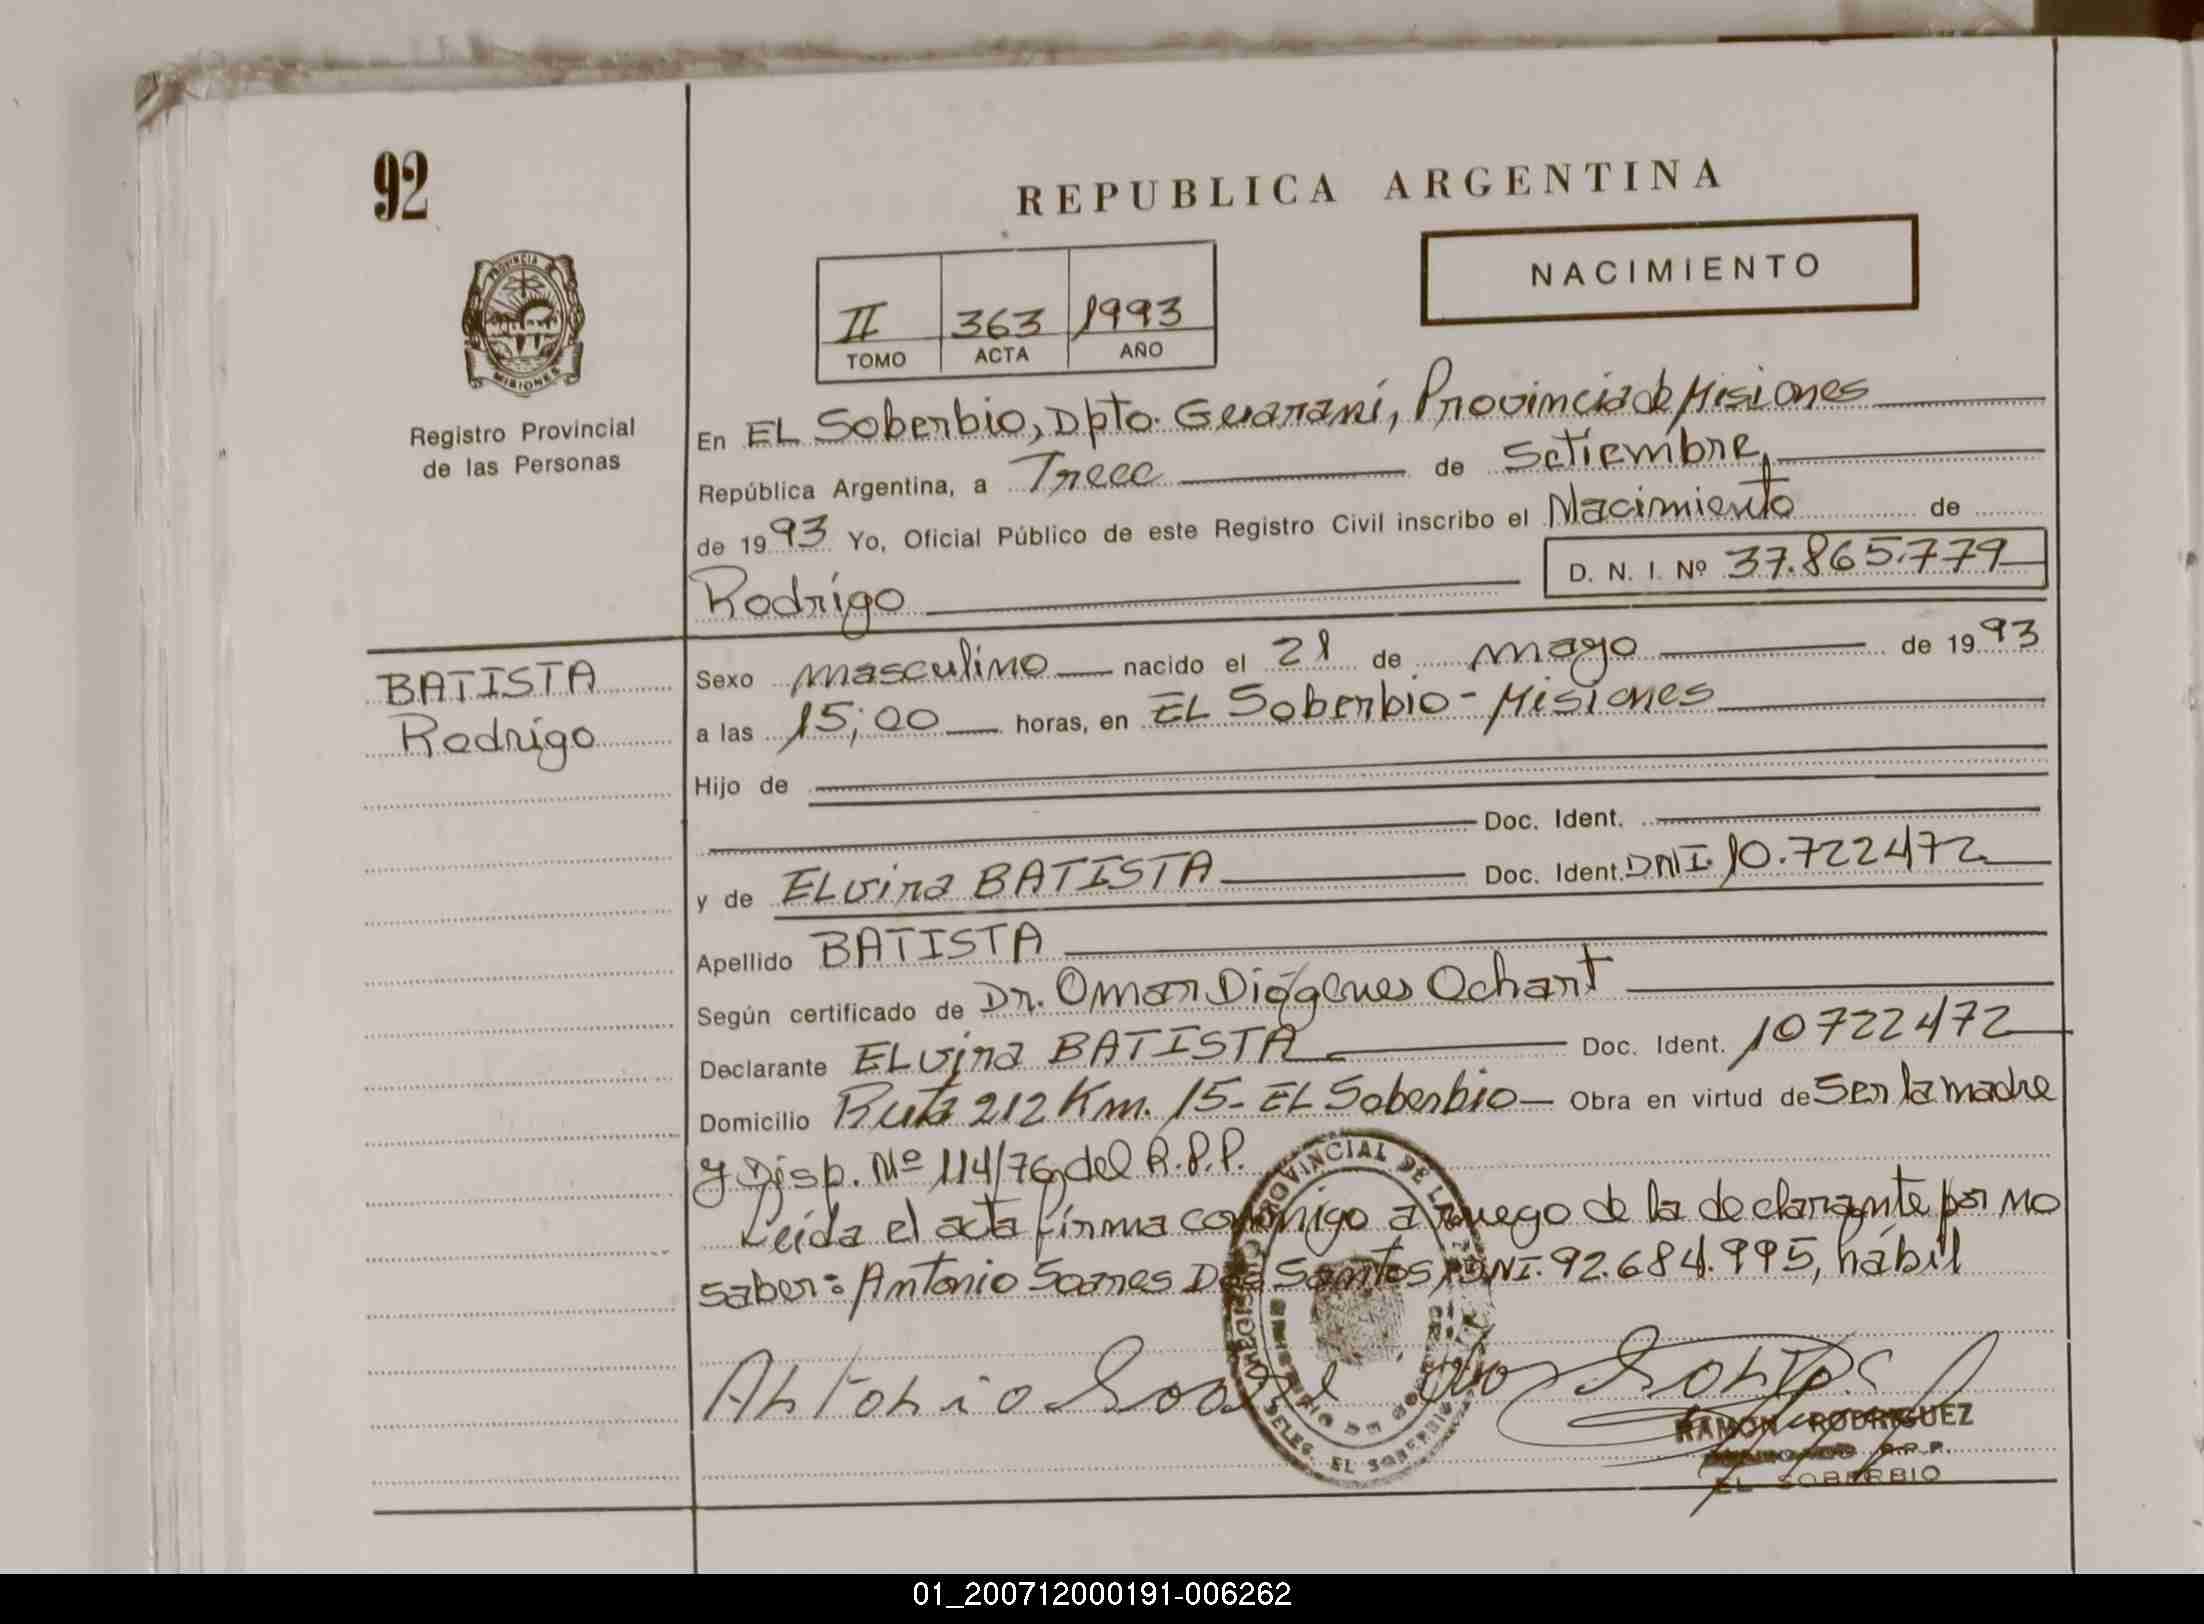 92
REPUBLICA ARGENTINA
NACIMIENTO
PROVINCIA DE
MISIONES
Registro Provincial
de las Personas
II 363 1993
TOMO ACTA AÑO
En EL Soberbio, Dpto. Guaraní, Provincia de Misiones
República Argentina, a Trece de Setiembre,
de 1993 Yo, Oficial Público de este Registro Civil inscribo el Nacimiento de
Rodrigo D. N. I. Nº 37.865.779
BATISTA
Rodrigo
Sexo masculino nacido el 21 de mayo de 1993
a las 15;00 horas, en EL Soberbio - Misiones
Hijo de
Doc. Ident.
y de ELvira BATISTA Doc. Ident. DNI. 10.722472
Apellido BATISTA
Según certificado de Dr. Omar Diógenes Ochart
Declarante ELvira BATISTA Doc. Ident. 10722472
Domicilio Ruta 212 Km. 15- EL Soberbio Obra en virtud de Ser la madre
y Disp. Nº 114/76 del R.P.P.
Leida el acta firma conmigo a ruego de la declarante por no
saber: Antonio Soares Dos Santos, DNI. 92.684.995, hábil
Antonio Soares dos Santos
PROVINCIAL DE LA
DELEG. EL SOBERBIO
RAMON RODRIGUEZ
R.P.P.
EL SOBERBIO
01_200712000191-006262